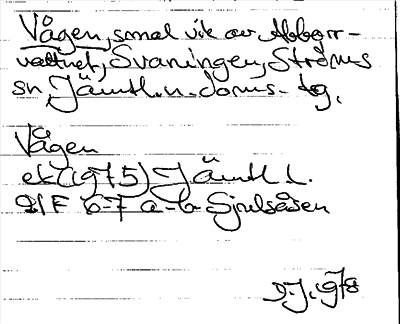 Vågen, smal vik av Abborr-
vattnet, Svaningen, Ströms
sn, Jämtl. n. doms- tg.
Vågen
ek (1975) Jämtl. l.
21F 6-7 a-b Sjulsåsen
D.J. 1978